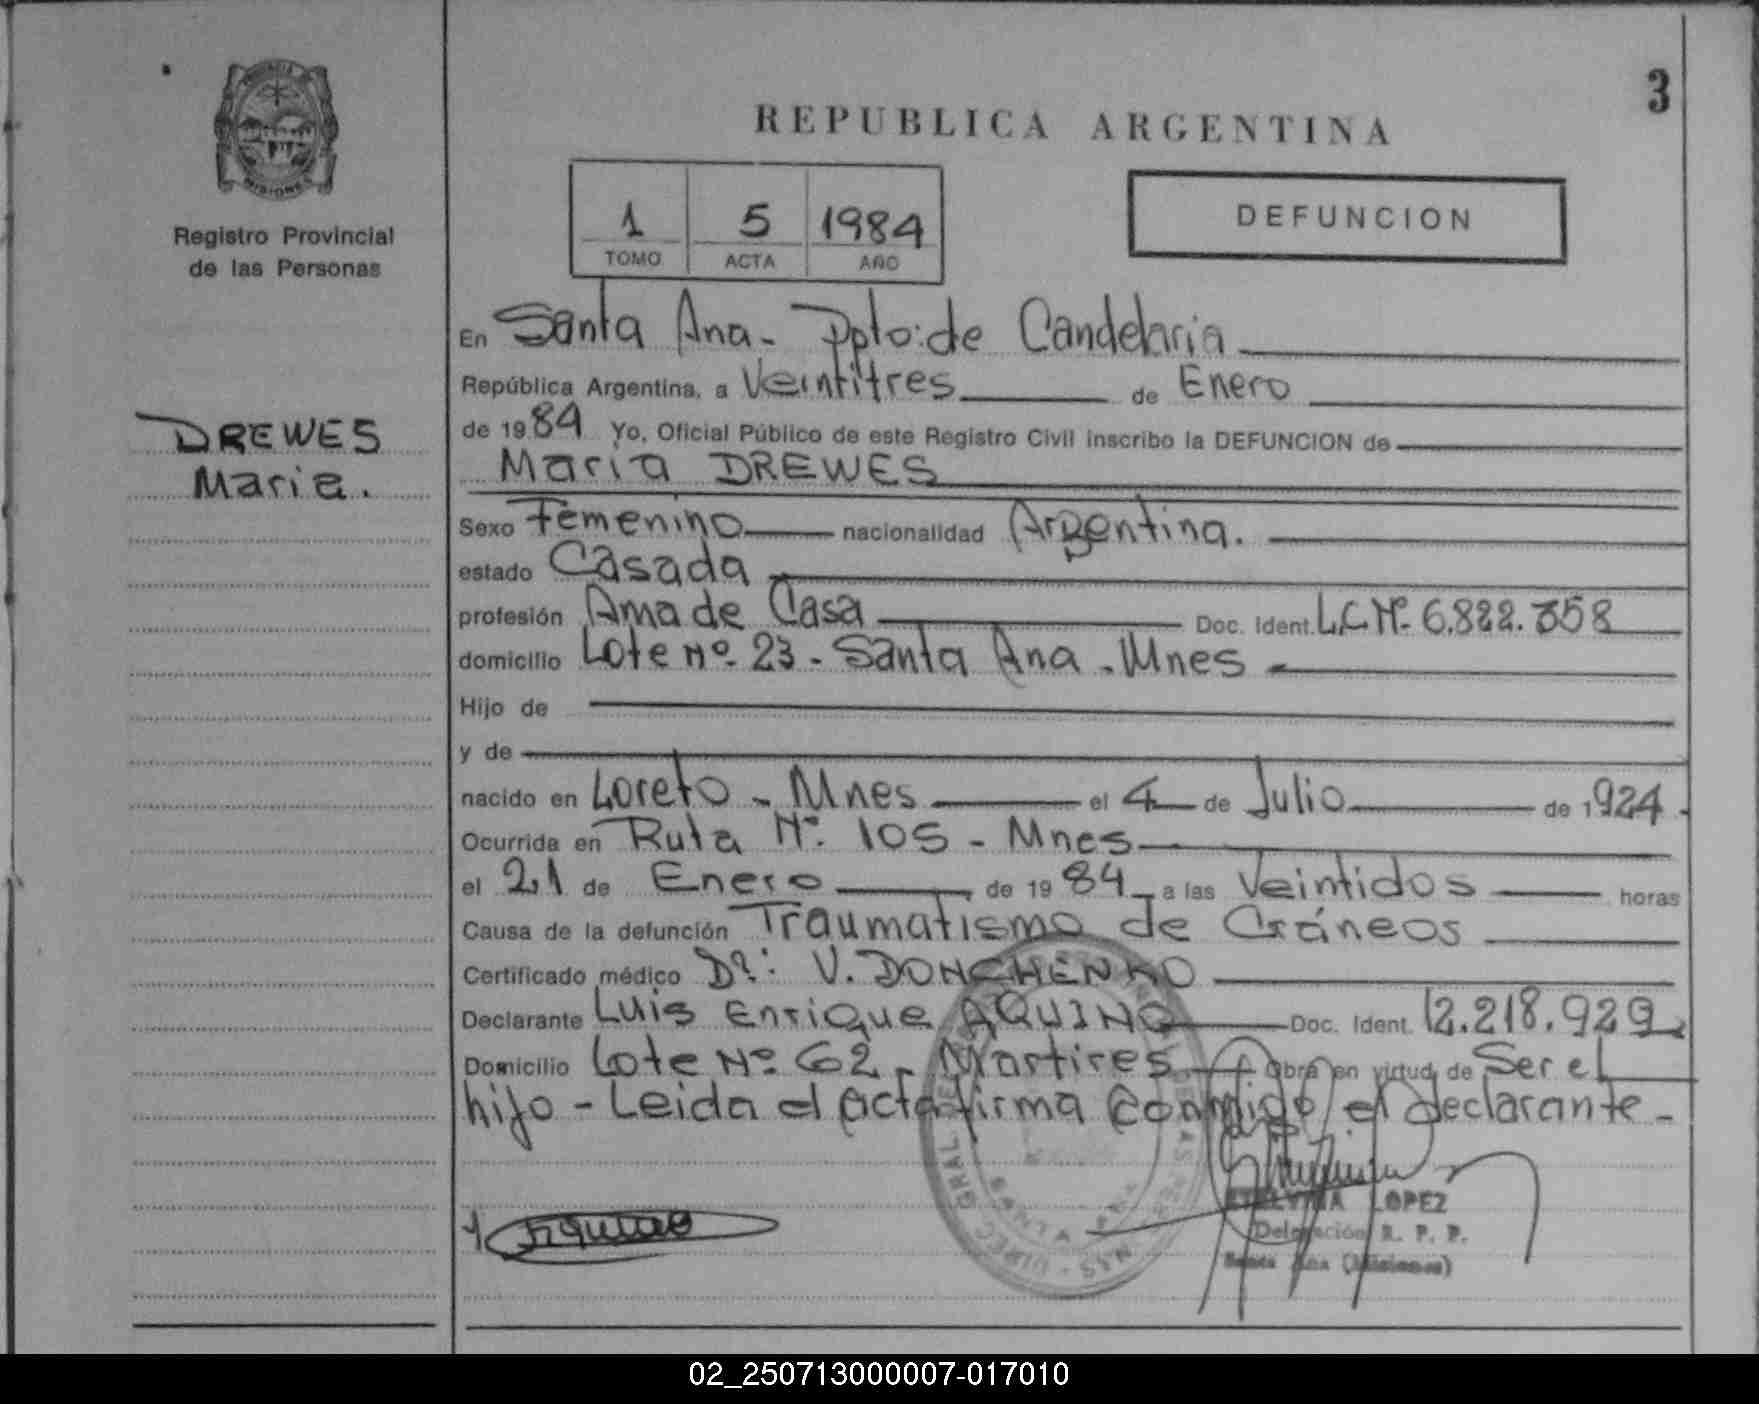 3
REPUBLICA ARGENTINA
MISIONES
Registro Provincial
de las Personas
1 5 1984
TOMO ACTA AÑO
DEFUNCION
DREWES
Maria.
En Santa Ana - Dpto: de Candelaria
República Argentina, a Veintitres de Enero
de 1984 Yo, Oficial Público de este Registro Civil inscribo la DEFUNCION de
Maria DREWES
Sexo Femenino nacionalidad Argentina.
estado Casada
profesión Ama de Casa Doc. Ident. L.C Nº 6.822.358
domicilio Lote Nº 23 - Santa Ana - Mnes
Hijo de
y de
nacido en Loreto - Mnes el 4 de Julio de 1924
Ocurrida en Ruta Nº 105 - Mnes
el 21 de Enero de 1984 a las Veintidos horas
Causa de la defunción Traumatismo de Cráneos
Certificado médico Dr: V. DONCHENKO
Declarante Luis Enrique AQUINO Doc. Ident. 12.218.929
Domicilio Lote Nº 62 - Martires Obra en virtud de Ser el
hijo - Leida el acta firma conmigo el declarante -
Aquino
ETELVINA LOPEZ
Delegación R. P. P.
Santa Ana (Misiones)
02_250713000007-017010